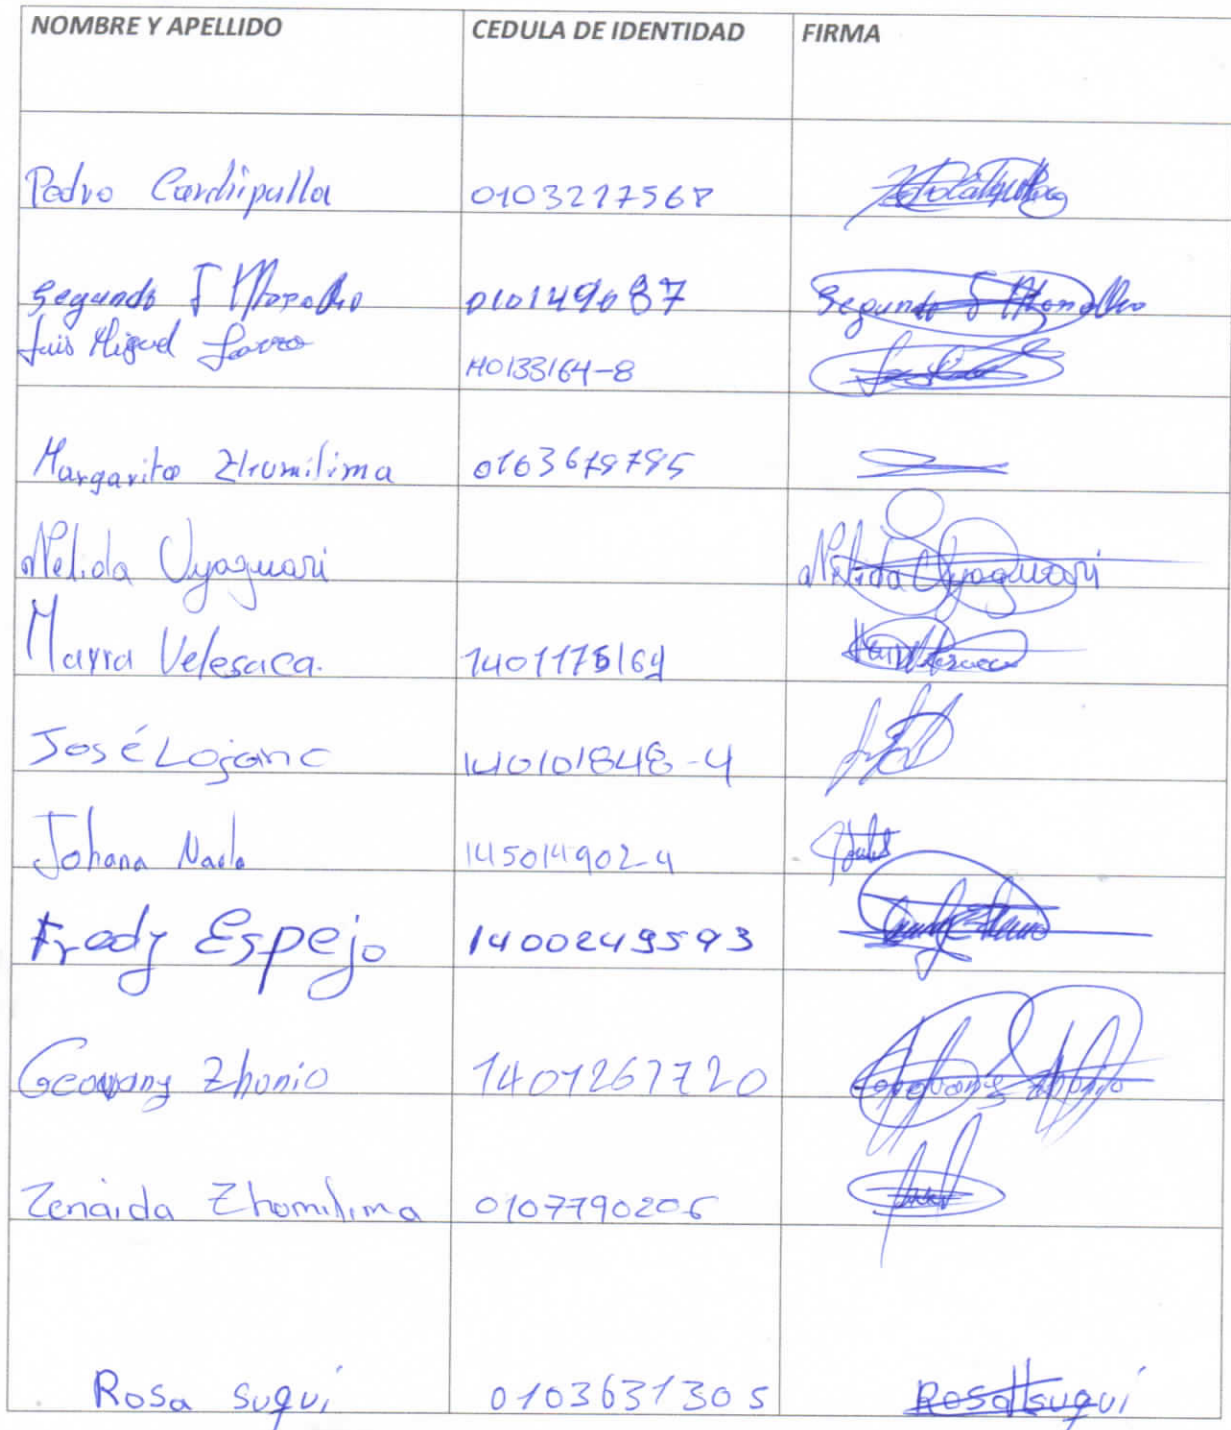 NOMBRE Y APELLIDO CEDULA DE IDENTIDAD FIRMA
Pedro 0103217568
Segundo J Morocho 010149087 Segundo J Morocho
Luis Miguel 140133164-8
Margarita Zhumilima 0103679795
Nelida Uyaguari Nelida Uyaguari
Mayra Velesaca. 1401175164
José Lojano 140101848-4
Johana Naula 145014902-4
Fredy Espejo 1400249593
Geovany Zhunio 1401267720 Geovany Zhunio
Zenaida Zhomilima 0107790206
Rosa suqui 0103631305 Rosa suqui